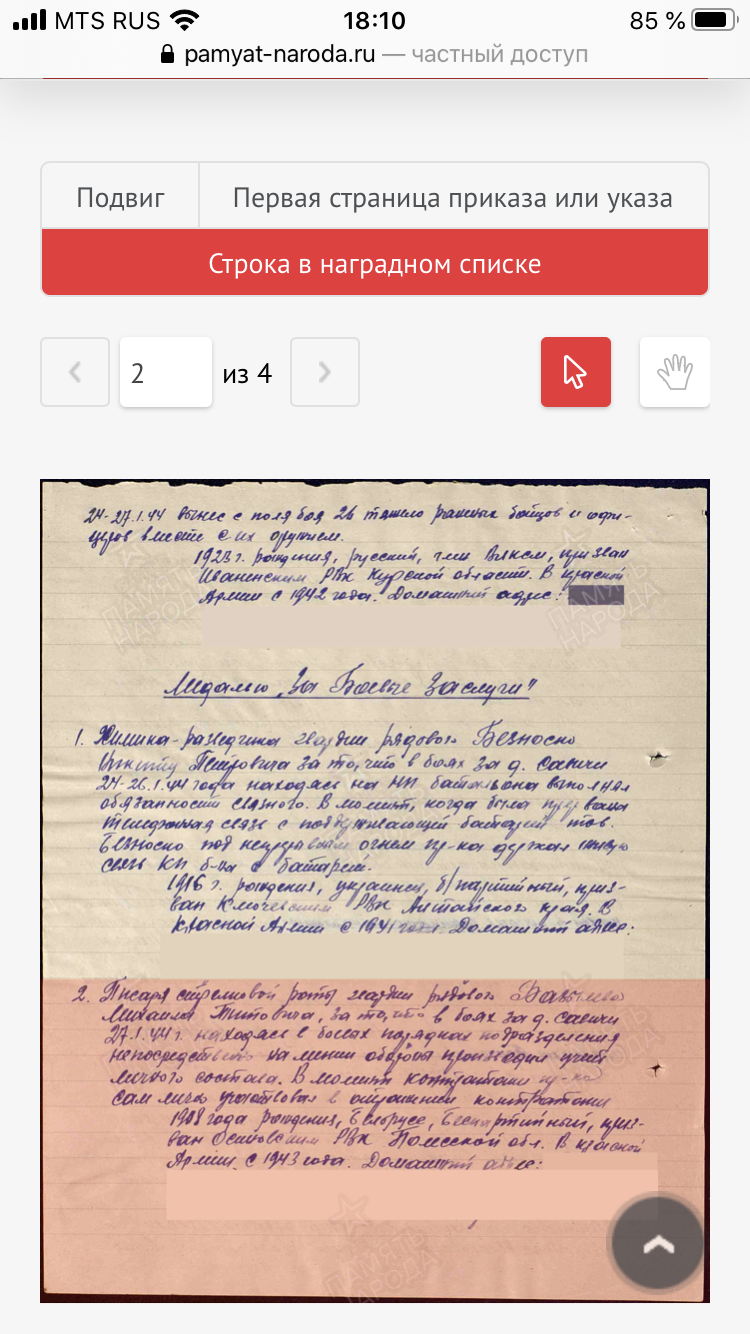 MTS RUS 18:10 85 %
pamyat-naroda.ru — частный доступ
Подвиг Первая страница приказа или указа
Строка в наградном списке
2 из 4
24-27.1.44 вынес с поля боя 26 тяжело раненых бойцов и офи-
церов вместе с их оружием.
1923 г. рождения, русский, член ВЛКСМ, призван
РВК Курской области. В Красной
Армии с 1942 года. Домашний адрес:
Медалью "За Боевые Заслуги"
1. Химика-разведчика гвардии рядового Безноско
Никиту Петровича за то, что в боях за д.
24-26.1.44 года находясь на НП батальона выполнял
обязанности связного. В момент, когда была прервана
телефонная связь с поддерживающей батареей тов.
Безноско под огнем пр-ка держал живую
связь КП б-на с батареей.
1916 г. рождения, украинец, б/партийный, приз-
ван Ключевским РВК Алтайского края. В
Красной Армии с 1941 года. Домашний адрес:
2. Писаря стрелковой роты гвардии рядового
Михаила Титовича, за то, что в боях за д.
27.1.44 г. находясь в боевых порядках подразделения
непосредственно на линии обороны производил учет
личного состава. В момент контратаки пр-ка
сам лично участвовал в отражении контратаки
1908 года рождения, Белорус, беспартийный, приз-
ван РВК Полесской обл. В Красной
Армии с 1943 года. Домашний адрес:
ПАМЯТЬ
НАРОДА